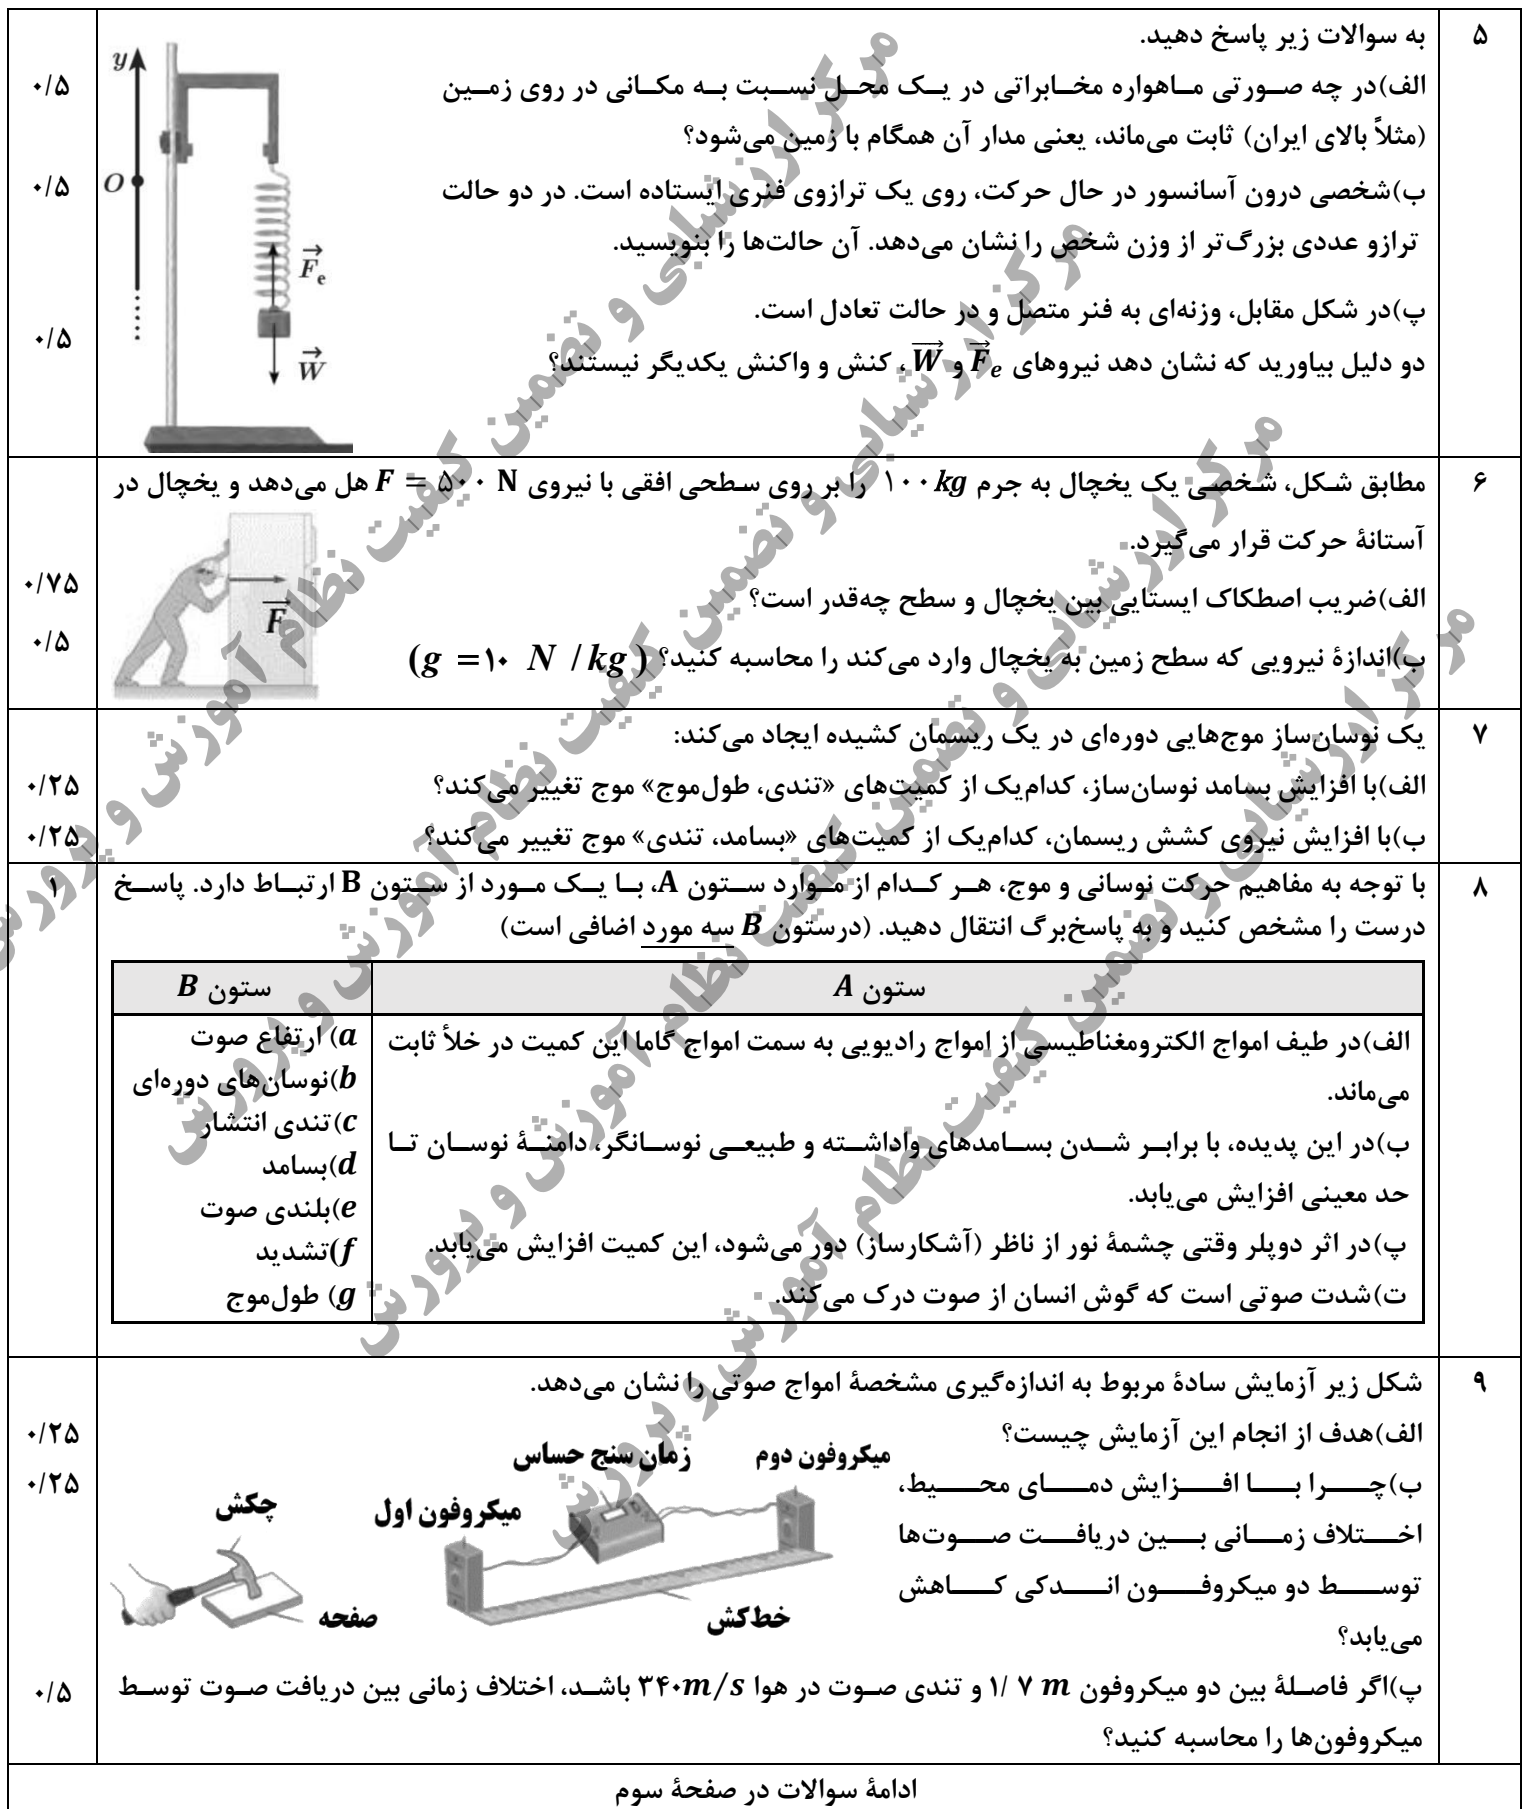 ۵
به سوالات زیر پاسخ دهید.
الف)در چه صورتی ماهواره مخابراتی در یک محل نسبت به مکانی در روی زمین
۰/۵
(مثلاً بالای ایران) ثابت می‌ماند، یعنی مدار آن همگام با زمین می‌شود؟
ب)شخصی درون آسانسور در حال حرکت، روی یک ترازوی فنری ایستاده است. در دو حالت
۰/۵
ترازو عددی بزرگ‌تر از وزن شخص را نشان می‌دهد. آن حالت‌ها را بنویسید.
پ)در شکل مقابل، وزنه‌ای به فنر متصل و در حالت تعادل است.
۰/۵
دو دلیل بیاورید که نشان دهد نیروهای F⃗e و W⃗، کنش و واکنش یکدیگر نیستند؟
y
O
F⃗e
W⃗
۶
مطابق شکل، شخصی یک یخچال به جرم ۱۰۰kg را بر روی سطحی افقی با نیروی F = ۵۰۰ N هل می‌دهد و یخچال در
آستانهٔ حرکت قرار می‌گیرد.
الف)ضریب اصطکاک ایستایی بین یخچال و سطح چه‌قدر است؟
۰/۷۵
ب)اندازهٔ نیرویی که سطح زمین به یخچال وارد می‌کند را محاسبه کنید؟ (g = ۱۰ N / kg)
۰/۵
F⃗
۷
یک نوسان‌ساز موج‌هایی دوره‌ای در یک ریسمان کشیده ایجاد می‌کند:
الف)با افزایش بسامد نوسان‌ساز، کدام‌یک از کمیت‌های «تندی، طول‌موج» موج تغییر می‌کند؟
۰/۲۵
ب)با افزایش نیروی کشش ریسمان، کدام‌یک از کمیت‌های «بسامد، تندی» موج تغییر می‌کند؟
۰/۲۵
۸
با توجه به مفاهیم حرکت نوسانی و موج، هر کدام از موارد ستون A، با یک مورد از ستون B ارتباط دارد. پاسخ
۱
درست را مشخص کنید و به پاسخ‌برگ انتقال دهید. (درستون B سه مورد اضافی است)
ستون A
ستون B
الف)در طیف امواج الکترومغناطیسی از امواج رادیویی به سمت امواج گاما این کمیت در خلأ ثابت
می‌ماند.
ب)در این پدیده، با برابر شدن بسامدهای واداشته و طبیعی نوسانگر، دامنهٔ نوسان تا
حد معینی افزایش می‌یابد.
پ)در اثر دوپلر وقتی چشمهٔ نور از ناظر (آشکارساز) دور می‌شود، این کمیت افزایش می‌یابد.
ت)شدت صوتی است که گوش انسان از صوت درک می‌کند.
a) ارتفاع صوت
b)نوسان‌های دوره‌ای
c)تندی انتشار
d)بسامد
e)بلندی صوت
f)تشدید
g) طول‌موج
۹
شکل زیر آزمایش سادهٔ مربوط به اندازه‌گیری مشخصهٔ امواج صوتی را نشان می‌دهد.
الف)هدف از انجام این آزمایش چیست؟
۰/۲۵
ب)چرا با افزایش دمای محیط،
۰/۲۵
اختلاف زمانی بین دریافت صوت‌ها
توسط دو میکروفون اندکی کاهش
می‌یابد؟
میکروفون دوم
زمان سنج حساس
میکروفون اول
چکش
صفحه
خط‌کش
پ)اگر فاصلهٔ بین دو میکروفون ۱/۷ m و تندی صوت در هوا ۳۴۰m/s باشد، اختلاف زمانی بین دریافت صوت توسط
۰/۵
میکروفون‌ها را محاسبه کنید؟
ادامهٔ سوالات در صفحهٔ سوم
مرکز ارزشیابی و تضمین کیفیت نظام آموزش و پرورش
مرکز ارزشیابی و تضمین کیفیت نظام آموزش و پرورش
مرکز ارزشیابی و تضمین کیفیت نظام آموزش و پرورش
مرکز ارزشیابی و تضمین کیفیت نظام آموزش و پرورش